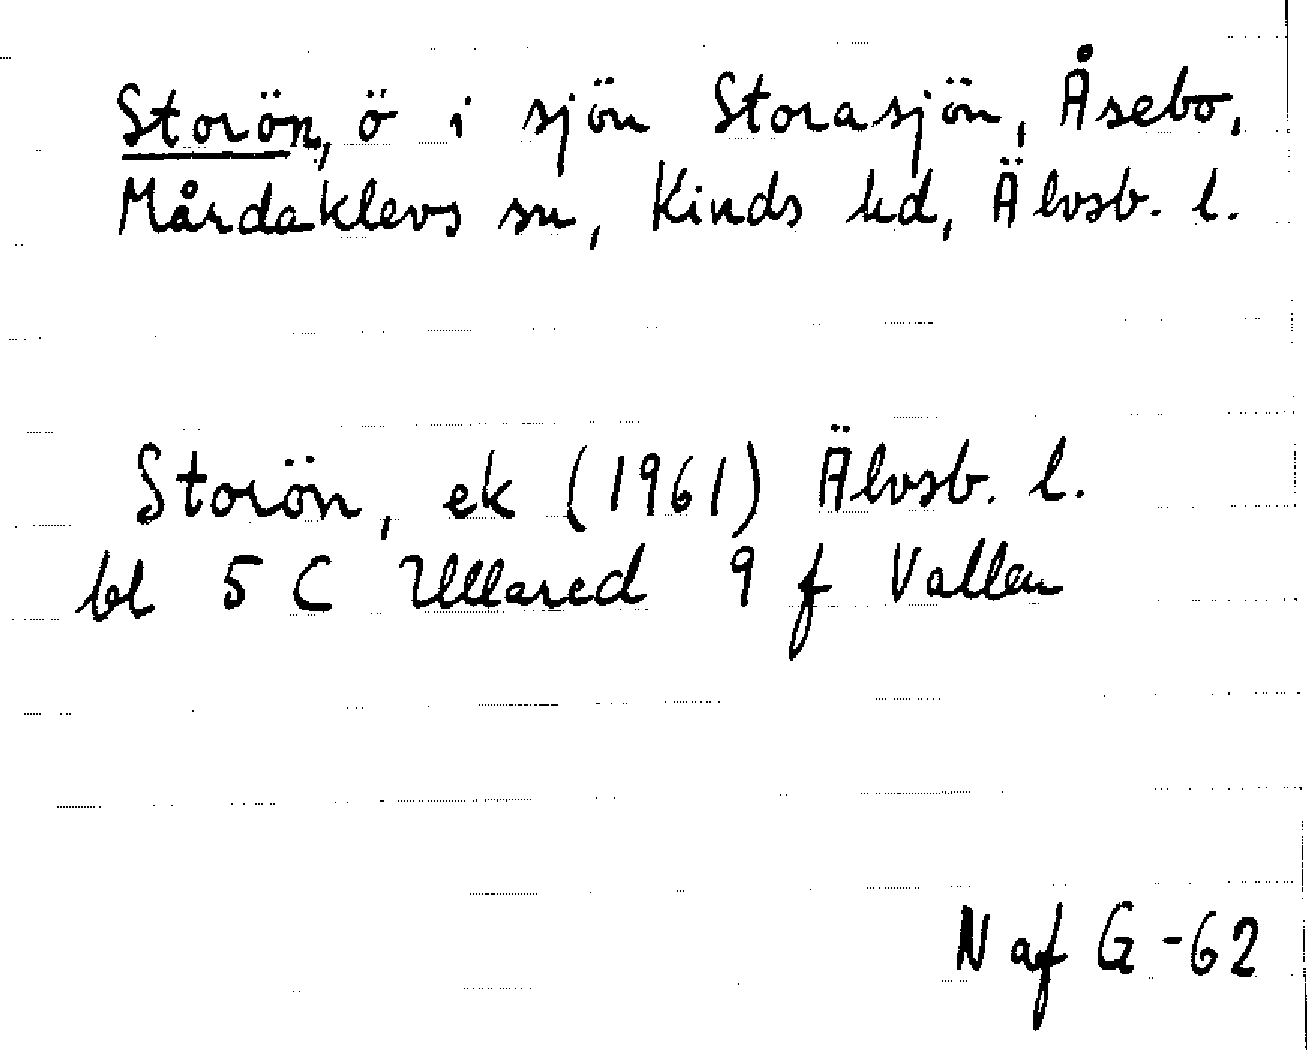 Storön, ö i sjön Storasjön, Åsebo,
Mårdaklevs sn, Kinds hd, Älvsb. l.
Storön, ek (1961) Älvsb. l.
bl 5 C Ullared 9 f Vallen
N af G -62